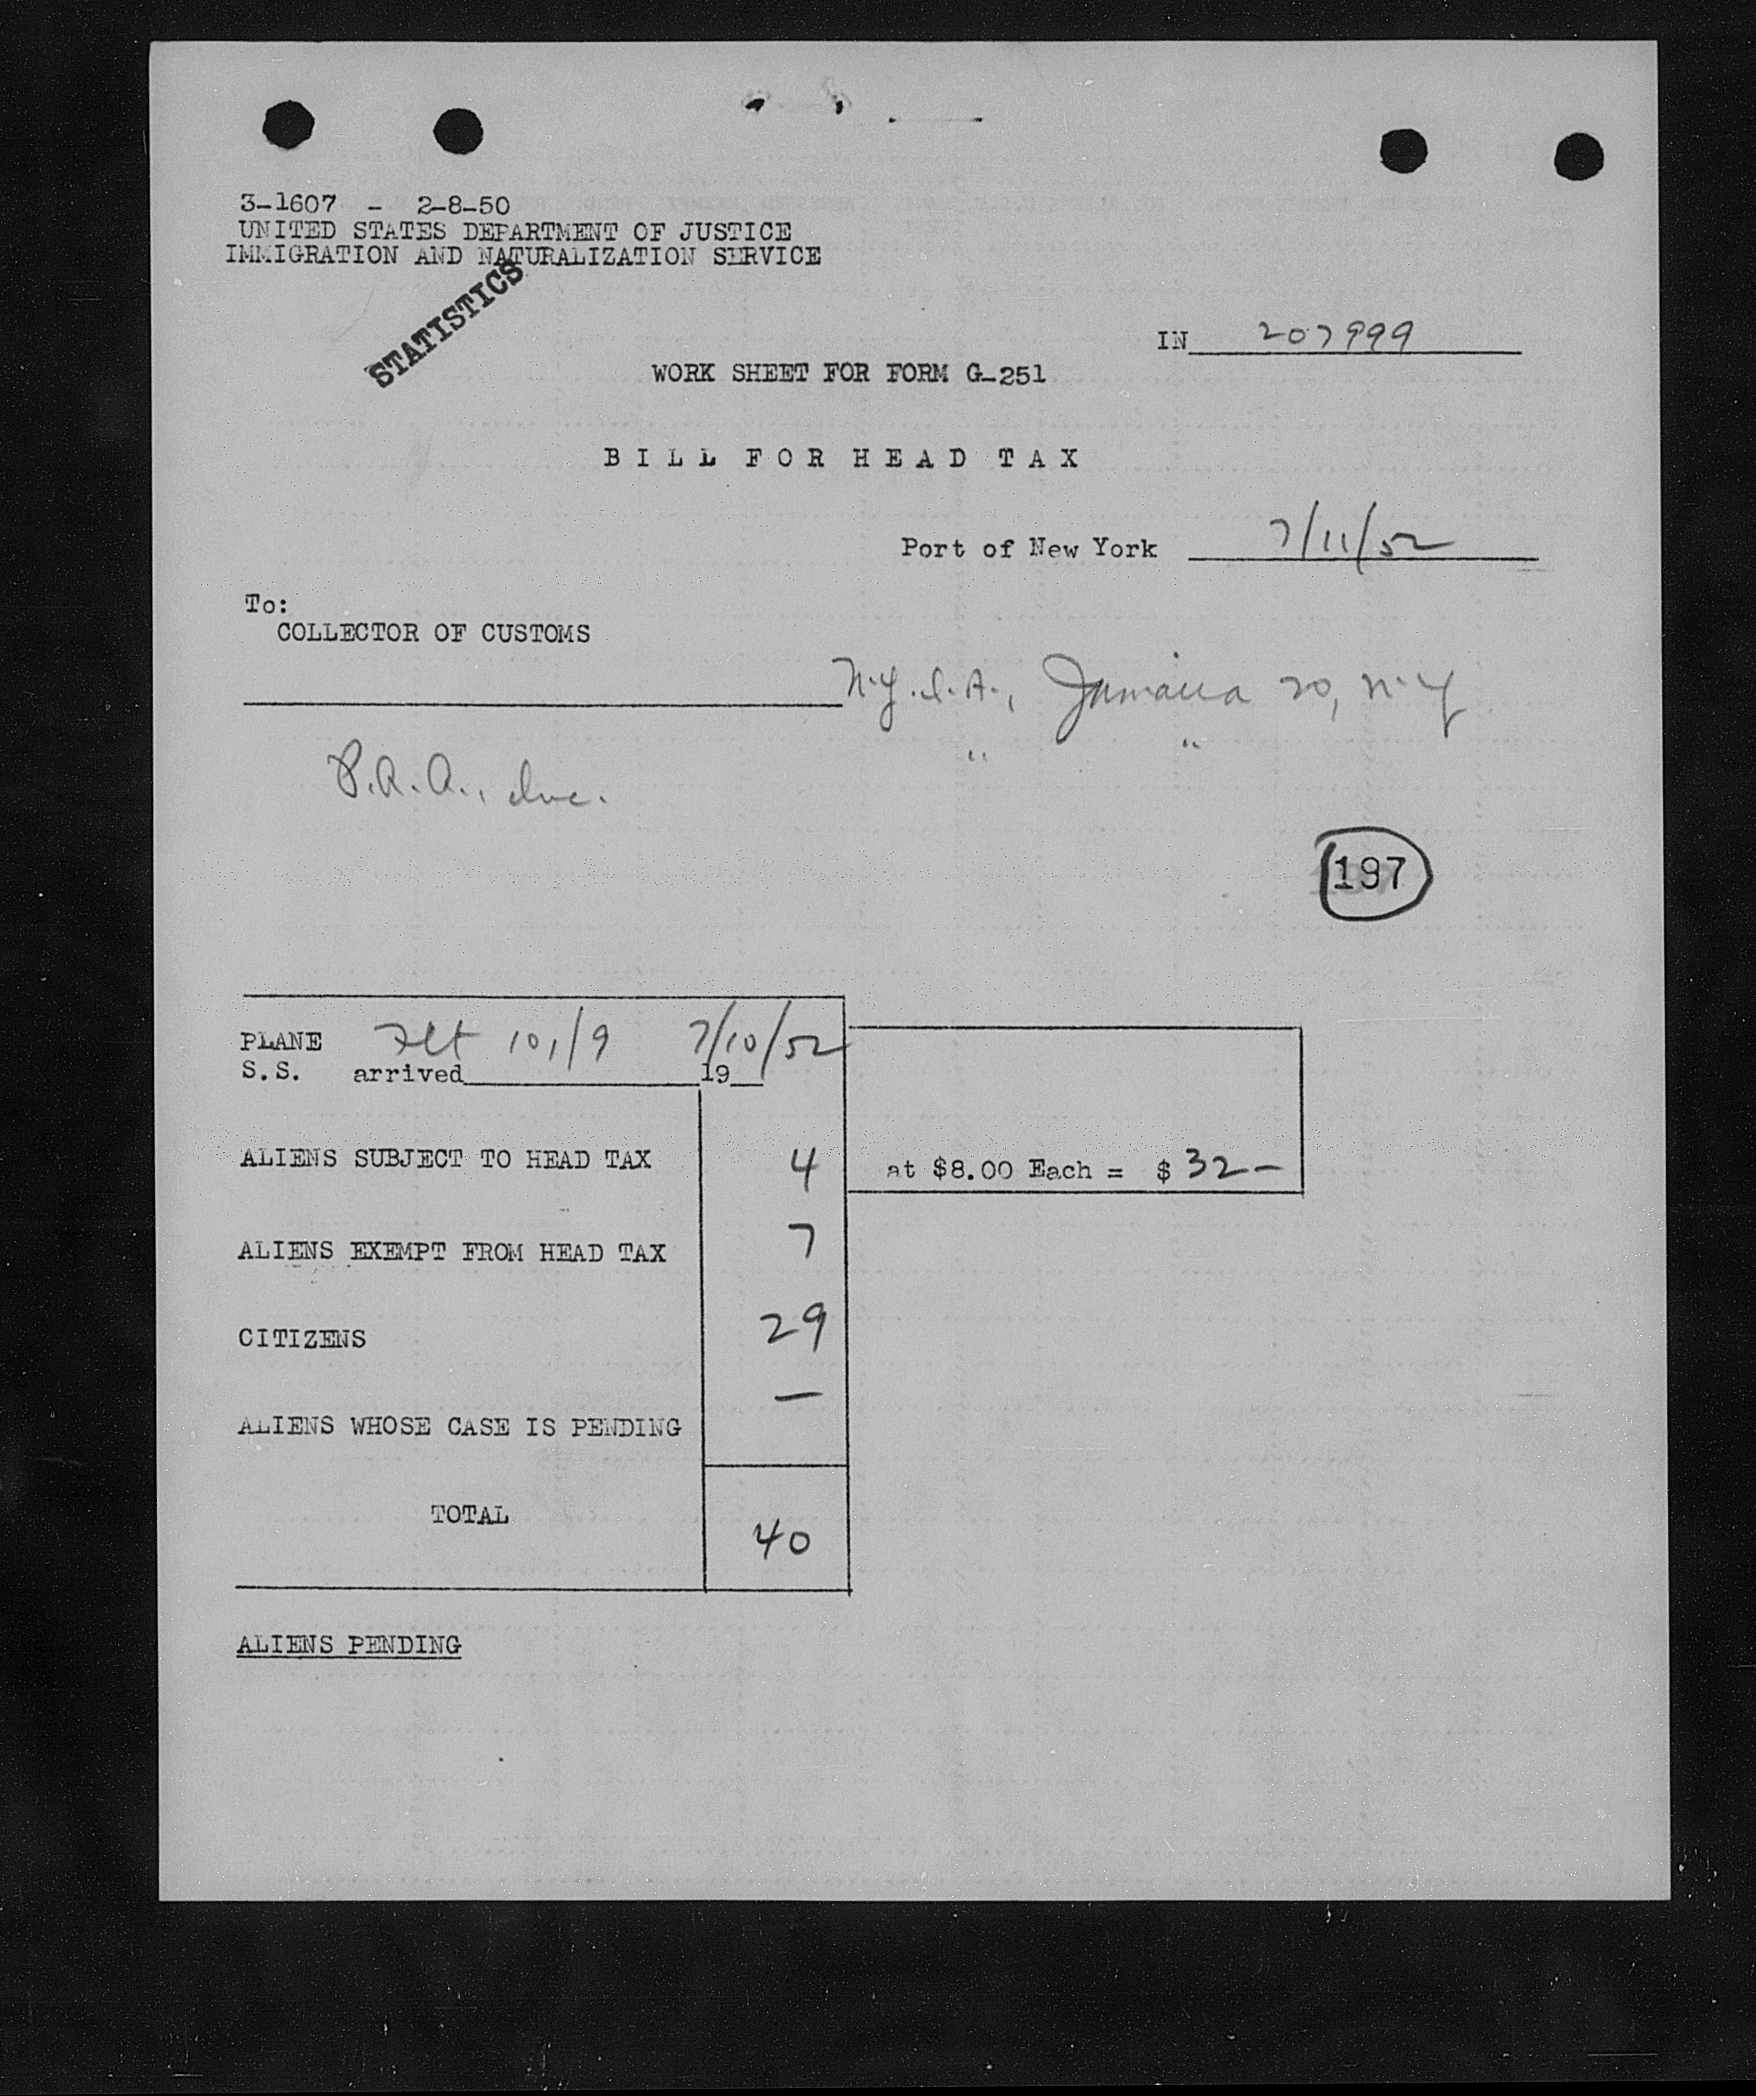 3-1607 - 2-8-50
UNITED STATES DEPARTMENT OF JUSTICE
IMMIGRATION AND NATURALIZATION SERVICE
STATISTICS
IN 207999
WORK SHEET FOR FORM G-251
BILL FOR HEAD TAX
Port of New York 7/11/52
To:
COLLECTOR OF CUSTOMS
N.Y.I.A., Jamaica 20, N.Y
" "
P.A.A., Inc.
197
PLANE Flt 101/9 7/10/52
S.S. arrived 19
ALIENS SUBJECT TO HEAD TAX 4 at $8.00 Each = $ 32-
ALIENS EXEMPT FROM HEAD TAX 7
CITIZENS 29
ALIENS WHOSE CASE IS PENDING —
TOTAL 40
ALIENS PENDING